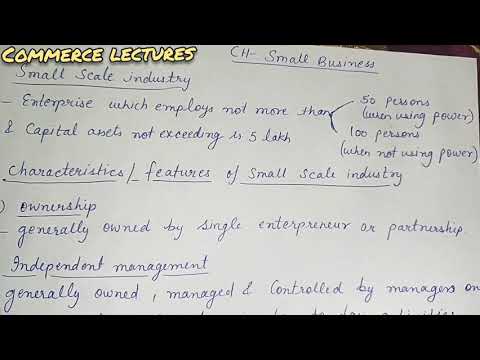 COMMERCE LECTURES
CH- Small Business
Small Scale industry
- Enterprise which employs not more than
50 persons
(when using power)
100 persons
(when not using power)
& Capital assets not exceeding is 5 lakh
Characteristics / features of Small Scale industry
) ownership
- generally owned by single enterpreneur or partnership.
Independent management
generally owned, managed & controlled by managers or